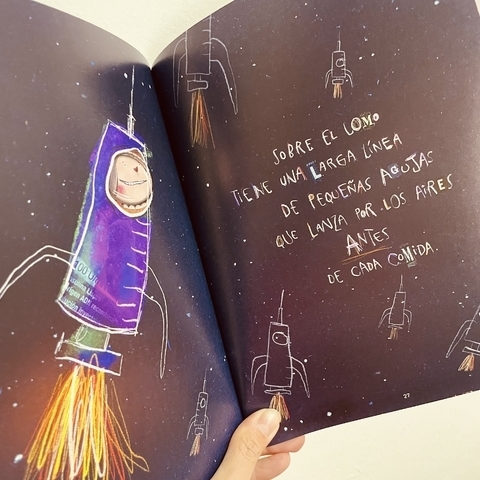 100 U
SOBRE EL LOMO
TIENE UNA LARGA LÍNEA
DE PEQUEÑAS AGUJAS
QUE LANZA POR LOS AIRES
ANTES
DE CADA COMIDA.
27